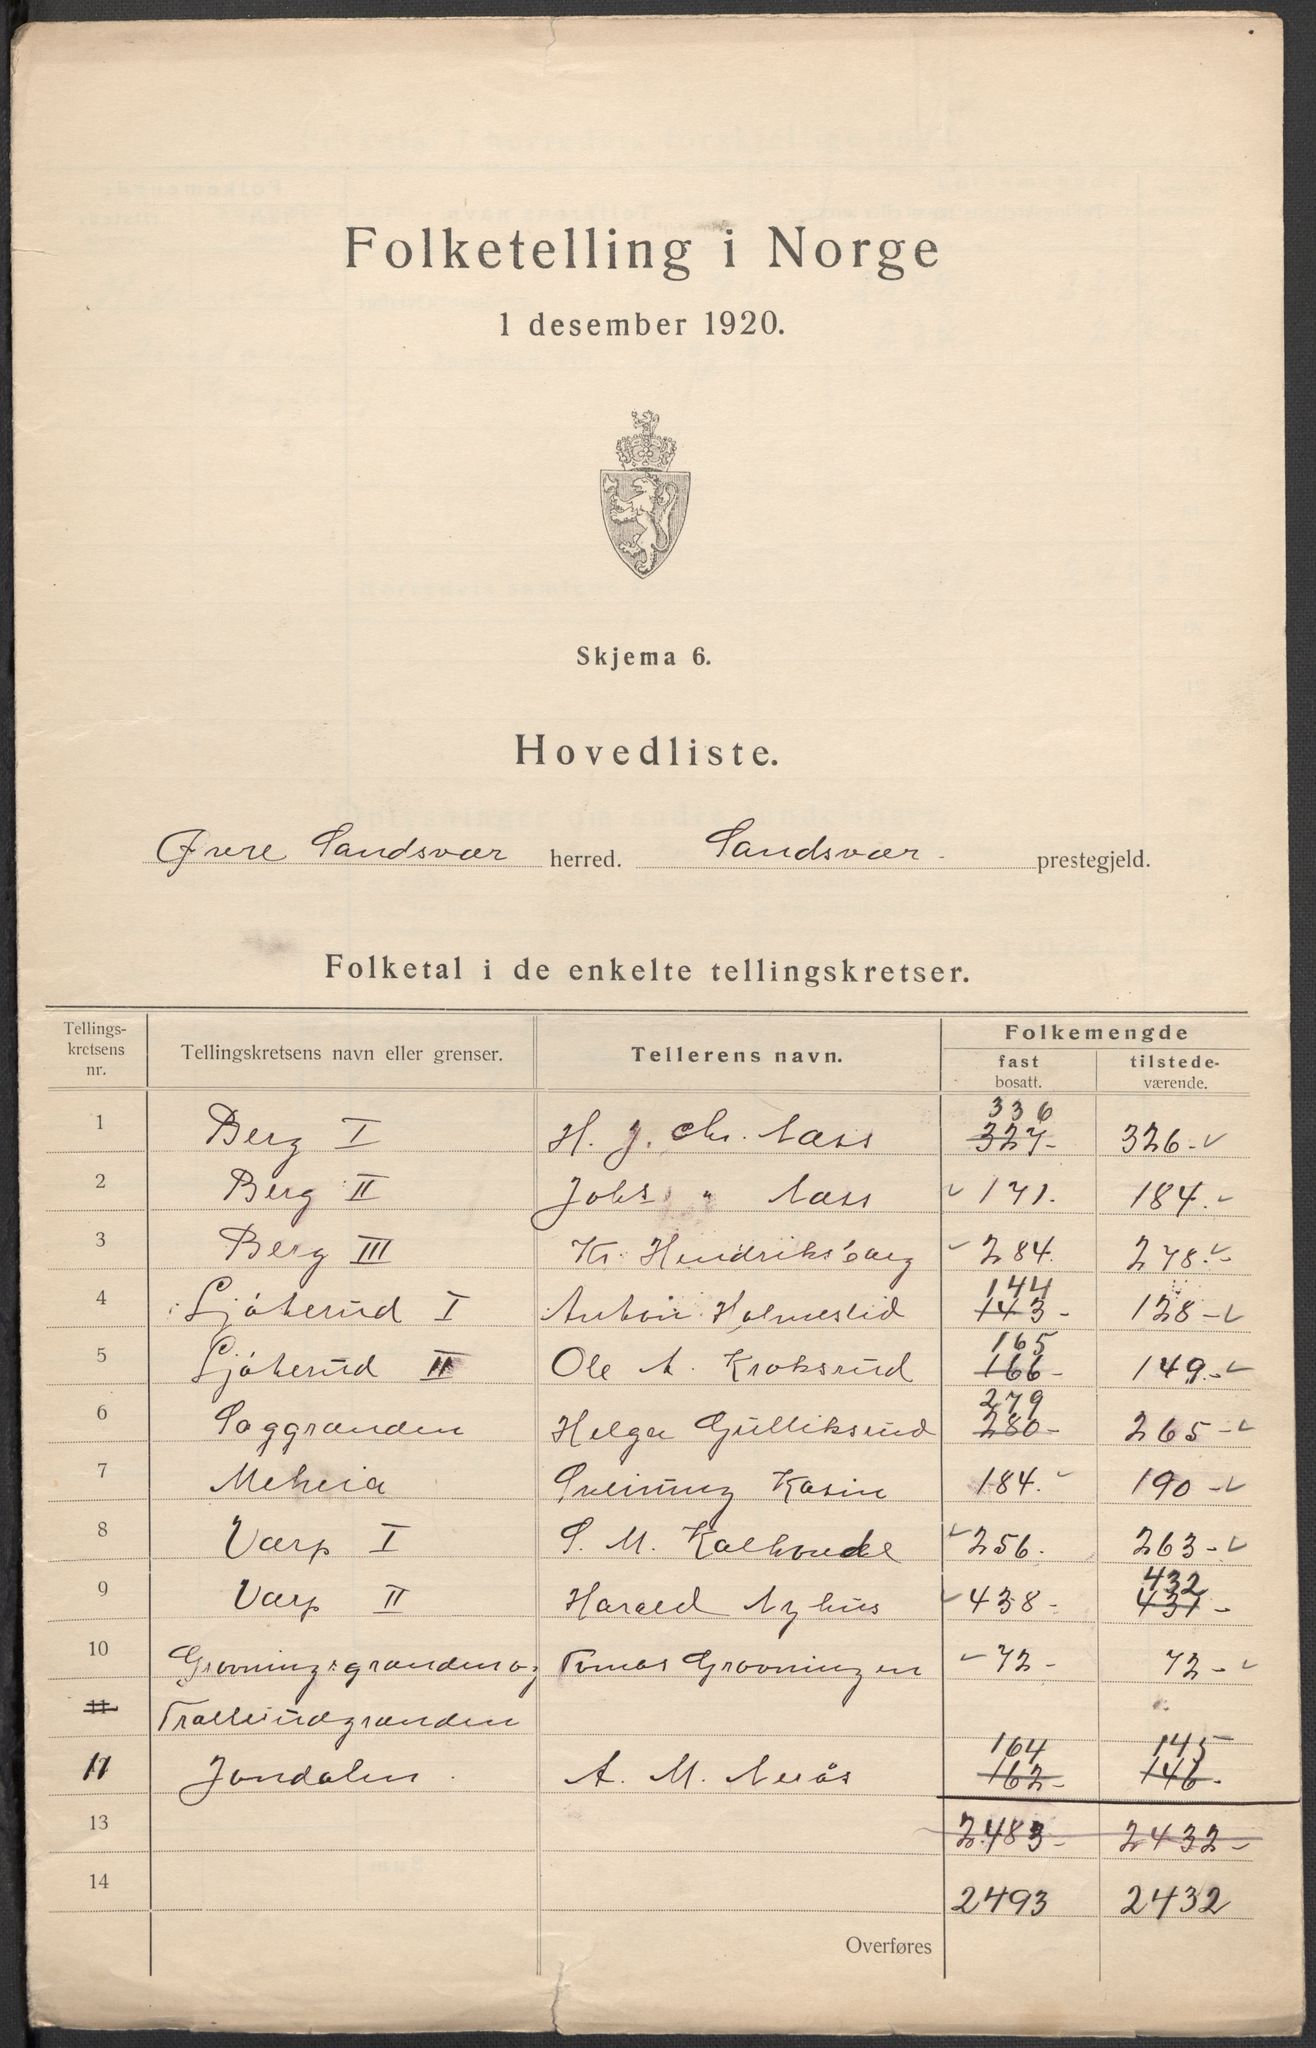 Folketelling i Norge
1 desember 1920.
Skjema 6.
Hovedliste.
Øvre Sandsvær herred. Sandsvær prestegjeld.
Folketal i de enkelte tellingskretser.
Tellings-kretsens nr. Tellingskretsens navn eller grenser. Tellerens navn. Folkemengde
fast bosatt. tilstede-værende.
336
1 Berg I H. J. Chr. Næss 327- 326-✓
2 Berg II Johs " Næss ✓ 171. 184.✓
3 Berg III Kr. Hendriksbærg ✓ 284. 278.✓
144
4 Ljøterud I Anton Holmeslid 143- 128-✓
165
5 Ljøterud II Ole A. Kroksrud 166- 149.-✓
279
6 Saggrenden Helge Gulliksrud 280- 265-✓
7 Meheia Sveinung Kasin 184.✓ 190-✓
8 Værp I S. M. ✓ 256. 263-✓
432
9 Værp II Harald Nyhus ✓ 438- 431-
10 Grovningsgrenden og Tomas Grovningen ✓ 72- 72-✓
11 Trollerudgrenden
164 145
11 Jondalen. A. M. Nerås 162- 146-
13 2483- 2432-
14 2493 2432
Overføres